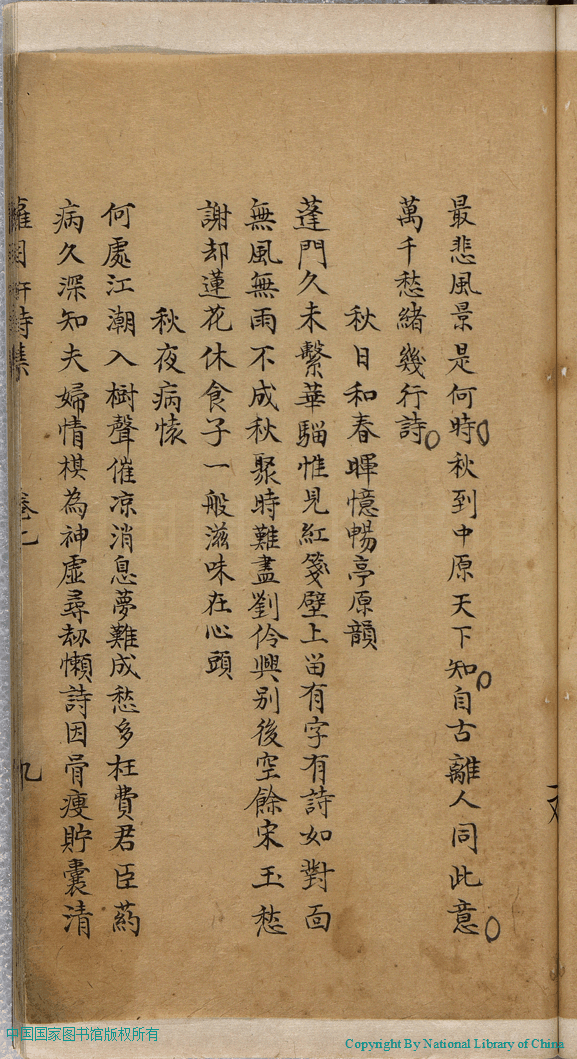 最悲風景是何時秋到中原天下知自古離人同此意
萬千愁緒幾行詩
秋日和春暉憶暢亭原韻
蓬門久未繫華騮惟見紅箋壁上畱有字有詩如對面
無風無雨不成秋聚時難盡劉伶興别後空餘宋玉愁
謝却蓮花休食子一般滋味在心頭
秋夜病懐
何處江潮入樹聲催凉消息夢難成愁多枉費君臣藥
病久深知夫婦情棋為神虛尋劫懶詩因骨瘦貯囊清
詩集 卷七 九
中国国家图书馆版权所有
Copyright By National Library of China